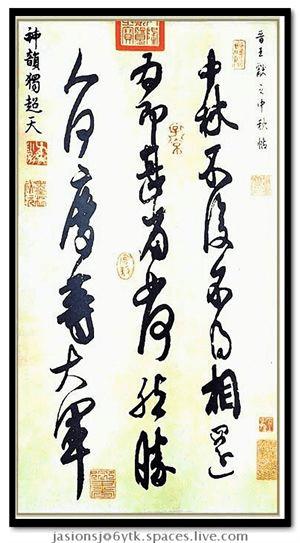 晉王獻之中秋帖
中秋不復不得相還
為即甚省如何然勝
人何慶等大軍
神韻獨超天
jasionsjo6ytk.spaces.live.com